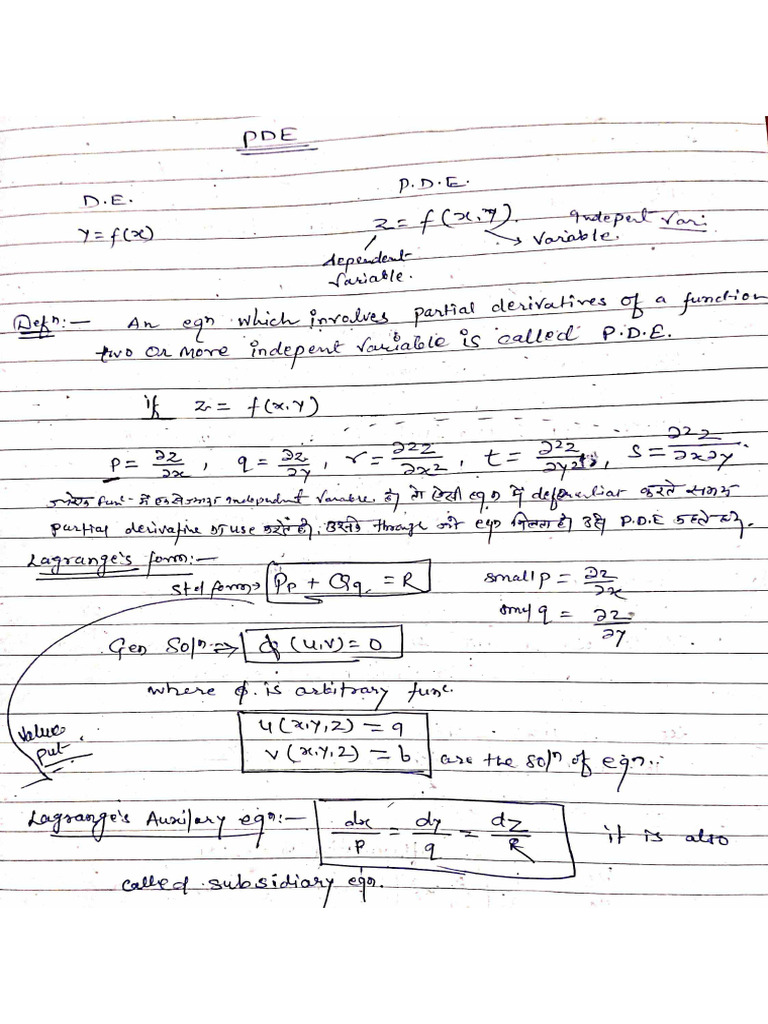 PDE
D.E.
P.D.E.
y = f(x)
z = f(x,y). Indepent Var:
→ Variable.
dependent
Variable.
Defn:— An eqn which involves partial derivatives of a function
two or more indepent variable is called P.D.E.
if z = f(x,y)
p = ∂z/∂x , q = ∂z/∂y , r = ∂²z/∂x² , t = ∂²z/∂y² , s = ∂²z/∂x∂y
independent variable हो eqn में करते समय
partial derivative use करते हैं, उसके through जो eqn मिलता है उसे P.D.E कहते हैं.
Lagrange's form:—
Std form→ Pp + Qq = R
small p = ∂z/∂x
q = ∂z/∂y
Gen Soln ⇒ φ (u,v) = 0
where φ is arbitrary func.
u(x,y,z) = a
v(x,y,z) = b are the soln of eqn.
Value
put
Lagrange's Auxilary eqn:— dx/P = dy/q = dz/R it is also
called subsidiary eqn.